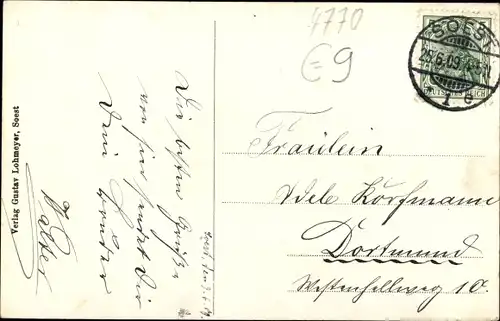 4770
€9
SOEST
25.6.09
1 e
DEUTSCHES REICH
Fräulein
Wele Korfmann
Dortmund
Westenhellweg 10.
Soest den
Die besten Grüße
von hier sendet Dir
Dein Bruder
Walter
Verlag Gustav Lohmeyer, Soest